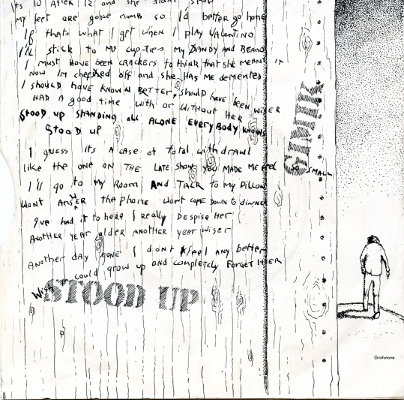 its 10 AFTER 12 and she didnt show
my feet are gone numb so I'd better go home
If thats what I get when I play VALENTINO
I'll stick to my cup-ties, my DANDY and BEANO
I must have been crackers to think that she meant it
now Im cheesed off and she HAS ME demented
I should have known BETTER, should have been wiser
HAD a good time with or without HER
STOOD UP STANDING ALL ALONE EVERYBODY KNOWS
STOOD UP
I guess its a case of total withdrawl
like the one on THE LATE show, you MADE ME feel so SMALL
I'll go to my ROOM AND TALK to my PILLOW
WONT ANSWER the phone wont come DOWN to dinner
I've had it to here I really Despise Her
Another year older another year wiser
Another day gone I dont feel any better
Wish I could grow up and completely forget HER
STOOD UP
GIMIK
Grafixtone